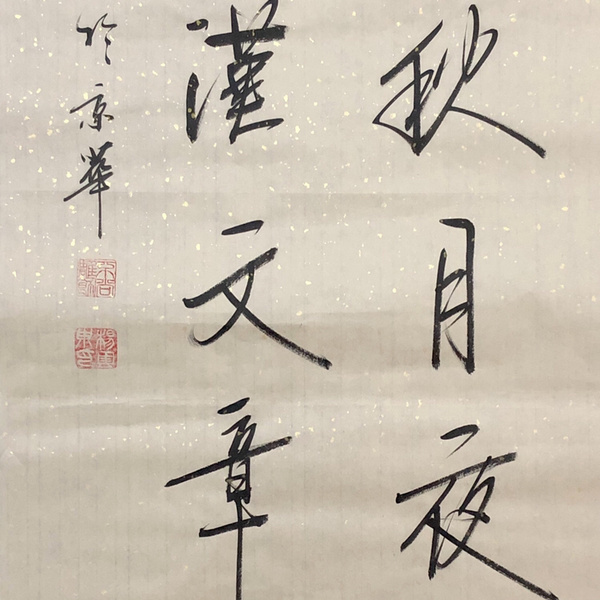 秋月夜
漢文章
於京華